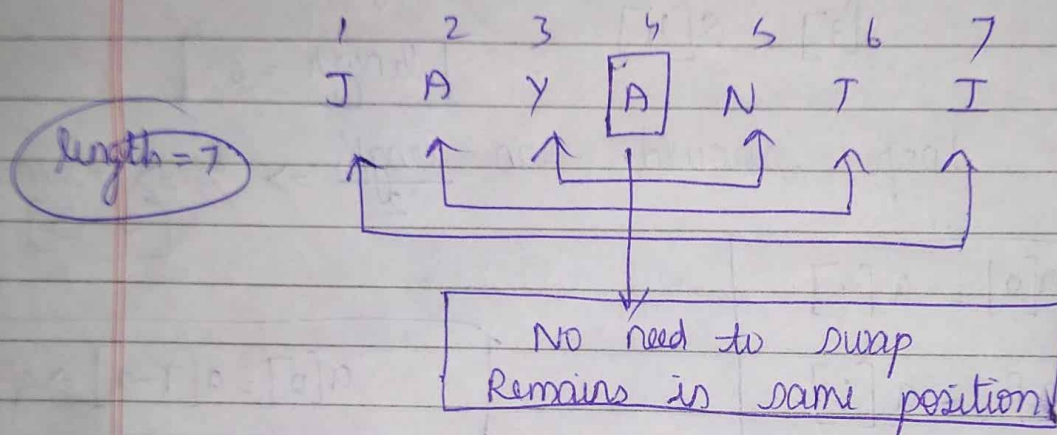 1 2 3 4 5 6 7
J A Y A N T I
length = 7
No need to swap
Remains is same position